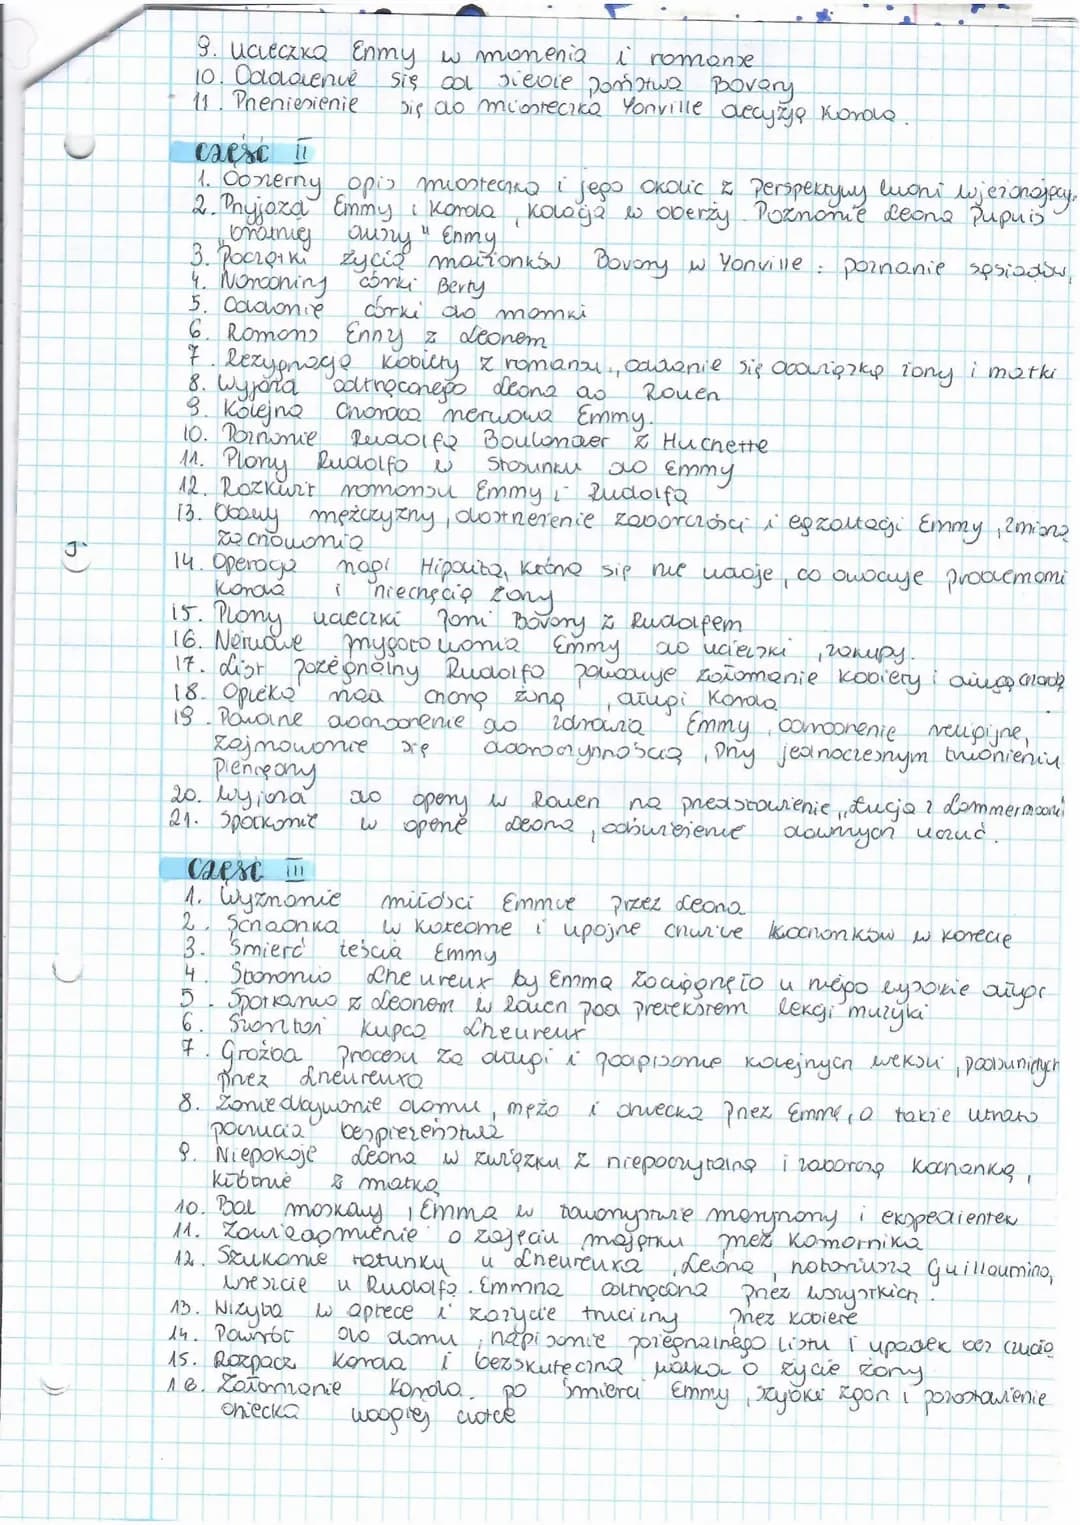 9. Ucieczka Emmy w marzenia i romanse
10. Oddalenie się od siebie państwa Bovary
11. Przeniesienie się do miasteczka Yonville decyzją Karola.
część II
1. Obszerny opis miasteczka i jego okolic z perspektywy wjeżdżającej
2. Przyjazd Emmy i Karola, kolacja w oberży. Poznanie Leona Dupuis
„bratniej duszy" Emmy
3. Początki życia małżonków Bovary w Yonville: poznanie sąsiadów,
4. Narodziny córki Berty
5. Oddanie córki do mamki
6. Romans Emmy z Leonem
7. Rezygnacja kobiety z romansu, oddanie się obowiązką żony i matki
8. Wyjazd odtrąconego Leona do Rouen
9. Kolejna choroba nerwowa Emmy.
10. Poznanie Rudolfa Boulanger z Huchette
11. Plany Rudolfa w stosunku do Emmy
12. Rozkwit romansu Emmy i Rudolfa
13. Obawy mężczyzny, dostrzeżenie zaborczości i egzaltacji Emmy, zmiana
zachowania
14. Operacja nogi Hipolita, która się nie udaje, co owocuje problemami
Karola i niechęcią żony
15. Plany ucieczki Pani Bovary z Rudolfem
16. Nerwowe przygotowania Emmy do ucieczki, zakupy.
17. List pożegnalny Rudolfa powoduje załamanie kobiety i długą chorobę
18. Opieka nad chorą żoną, długi Karola
19. Powolne dochodzenie do zdrowia Emmy, odrodzenie religijne,
zajmowanie się dobroczynnością, przy jednoczesnym trwonieniu
pieniędzy
20. Wyjazd do opery w Rouen na przedstawienie „Łucja z Lammermooru
21. Spotkanie w operze Leona, odświeżenie dawnych uczuć.
część III
1. Wyznanie miłości Emmie przez Leona
2. Schadzka w katedrze i upojne chwile kochanków w karecie
3. Śmierć teścia Emmy
4. Staranie Lheureux by Emma zaciągnęła u niego wysokie długi
5. Spotkania z Leonem w Rouen pod pretekstem lekcji muzyki
6. Szantaż kupca Lheureux
7. Groźba procesu za długi i podpisanie kolejnych weksli, podsuniętych
przez Lheureuxa
8. Zaniedbywanie domu, męża i dziecka przez Emmę, a także utrata
poczucia bezpieczeństwa
9. Niepokoje Leona w związku z niepoczytalną i zaborczą kochanką,
kłótnie z matką
10. Bal maskowy, Emma w towarzystwie marynarzy i ekspedientek
11. Zawiadomienie o zajęciu majątku przez komornika
12. Szukanie ratunku u Lheureuxa, Leona, notariusza Guillaumina,
wreszcie u Rudolfa. Emma odtrącona przez wszystkich.
13. Wizyta w aptece i zażycie trucizny przez kobiete
14. Powrót do domu, napisanie pożegnalnego listu i upadek bez czucia
15. Rozpacz Karola i bezskuteczna walka o życie żony
16. Załamanie Karola po śmierci Emmy, szybki zgon i pozostawienie
dziecka ubogiej ciotce